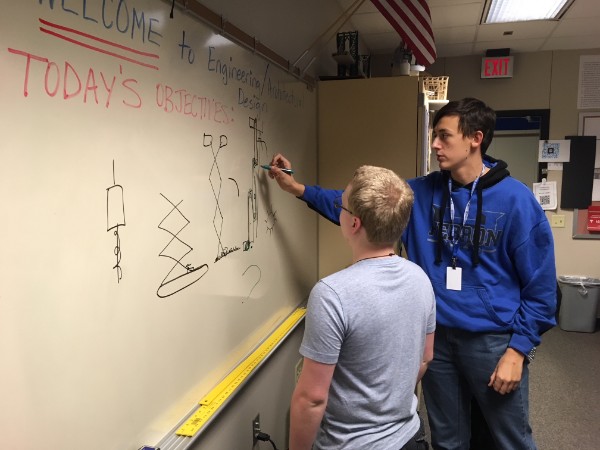 WELCOME to Engineering/Architectural
Design
TODAY'S OBJECTIVES:
EXIT
AKRON